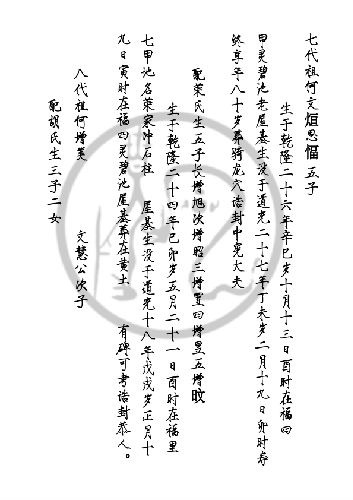 七代祖何文烜思愊 五子
生于乾隆二十六年辛巳岁十月十三日酉时在福四
甲灵碧池老屋基生没于道光二十七年丁未岁二月十九日卯时寿
终享年八十岁葬骑龙穴诰封中宪大夫
配荣氏生五子长增旭次增昭三增昱四增昱五增旼
生于乾隆二十四年己卯岁五月二十一日酉时在福里
七甲地名荣家冲石柱 屋基生没于道光十八年戊戌岁正月十
九日寅时在福四灵碧池屋基葬在黄土 有碑可考诰封恭人。
八代祖何增 文慧公次子
配胡氏生三子二女